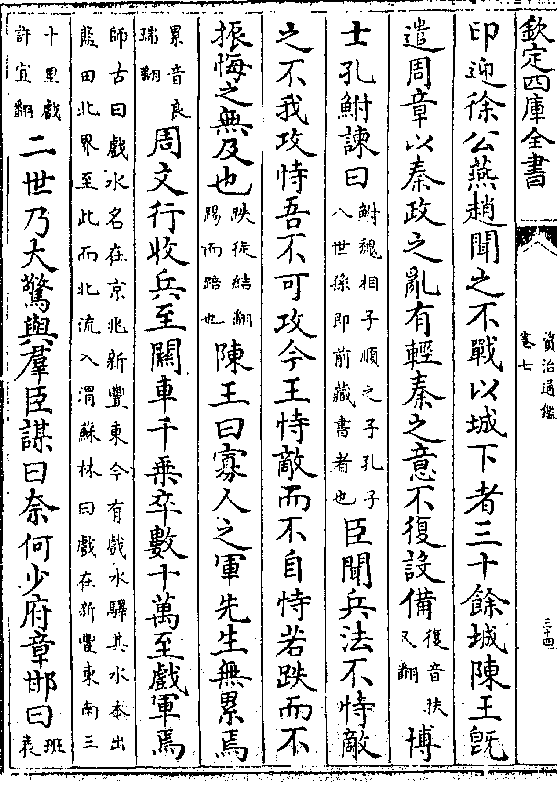 欽定四庫全書
資治通鑑
卷七
三十四
印迎徐公燕趙聞之不戰以城下者三十餘城陳王既
遣周章以秦政之亂有輕秦之意不復設備復音扶又翻博
士孔鮒諫曰鮒魏相子順之子孔子八世孫即前藏書者也臣聞兵法不恃敵
之不我攻恃吾不可攻今王恃敵而不自恃若跌而不
振悔之無及也跌徒結翻踢而踣也陳王曰寡人之軍先生無累焉
累音良瑞翻周文行收兵至關車千乘卒數十萬至戲軍焉
師古曰戲水名在京兆新豐東今有戲水驛其水本出藍田北界至此而北流入渭蘇林曰戲在新豐東南三
十里戲許宜翻二世乃大驚與羣臣謀曰奈何少府章邯曰班表